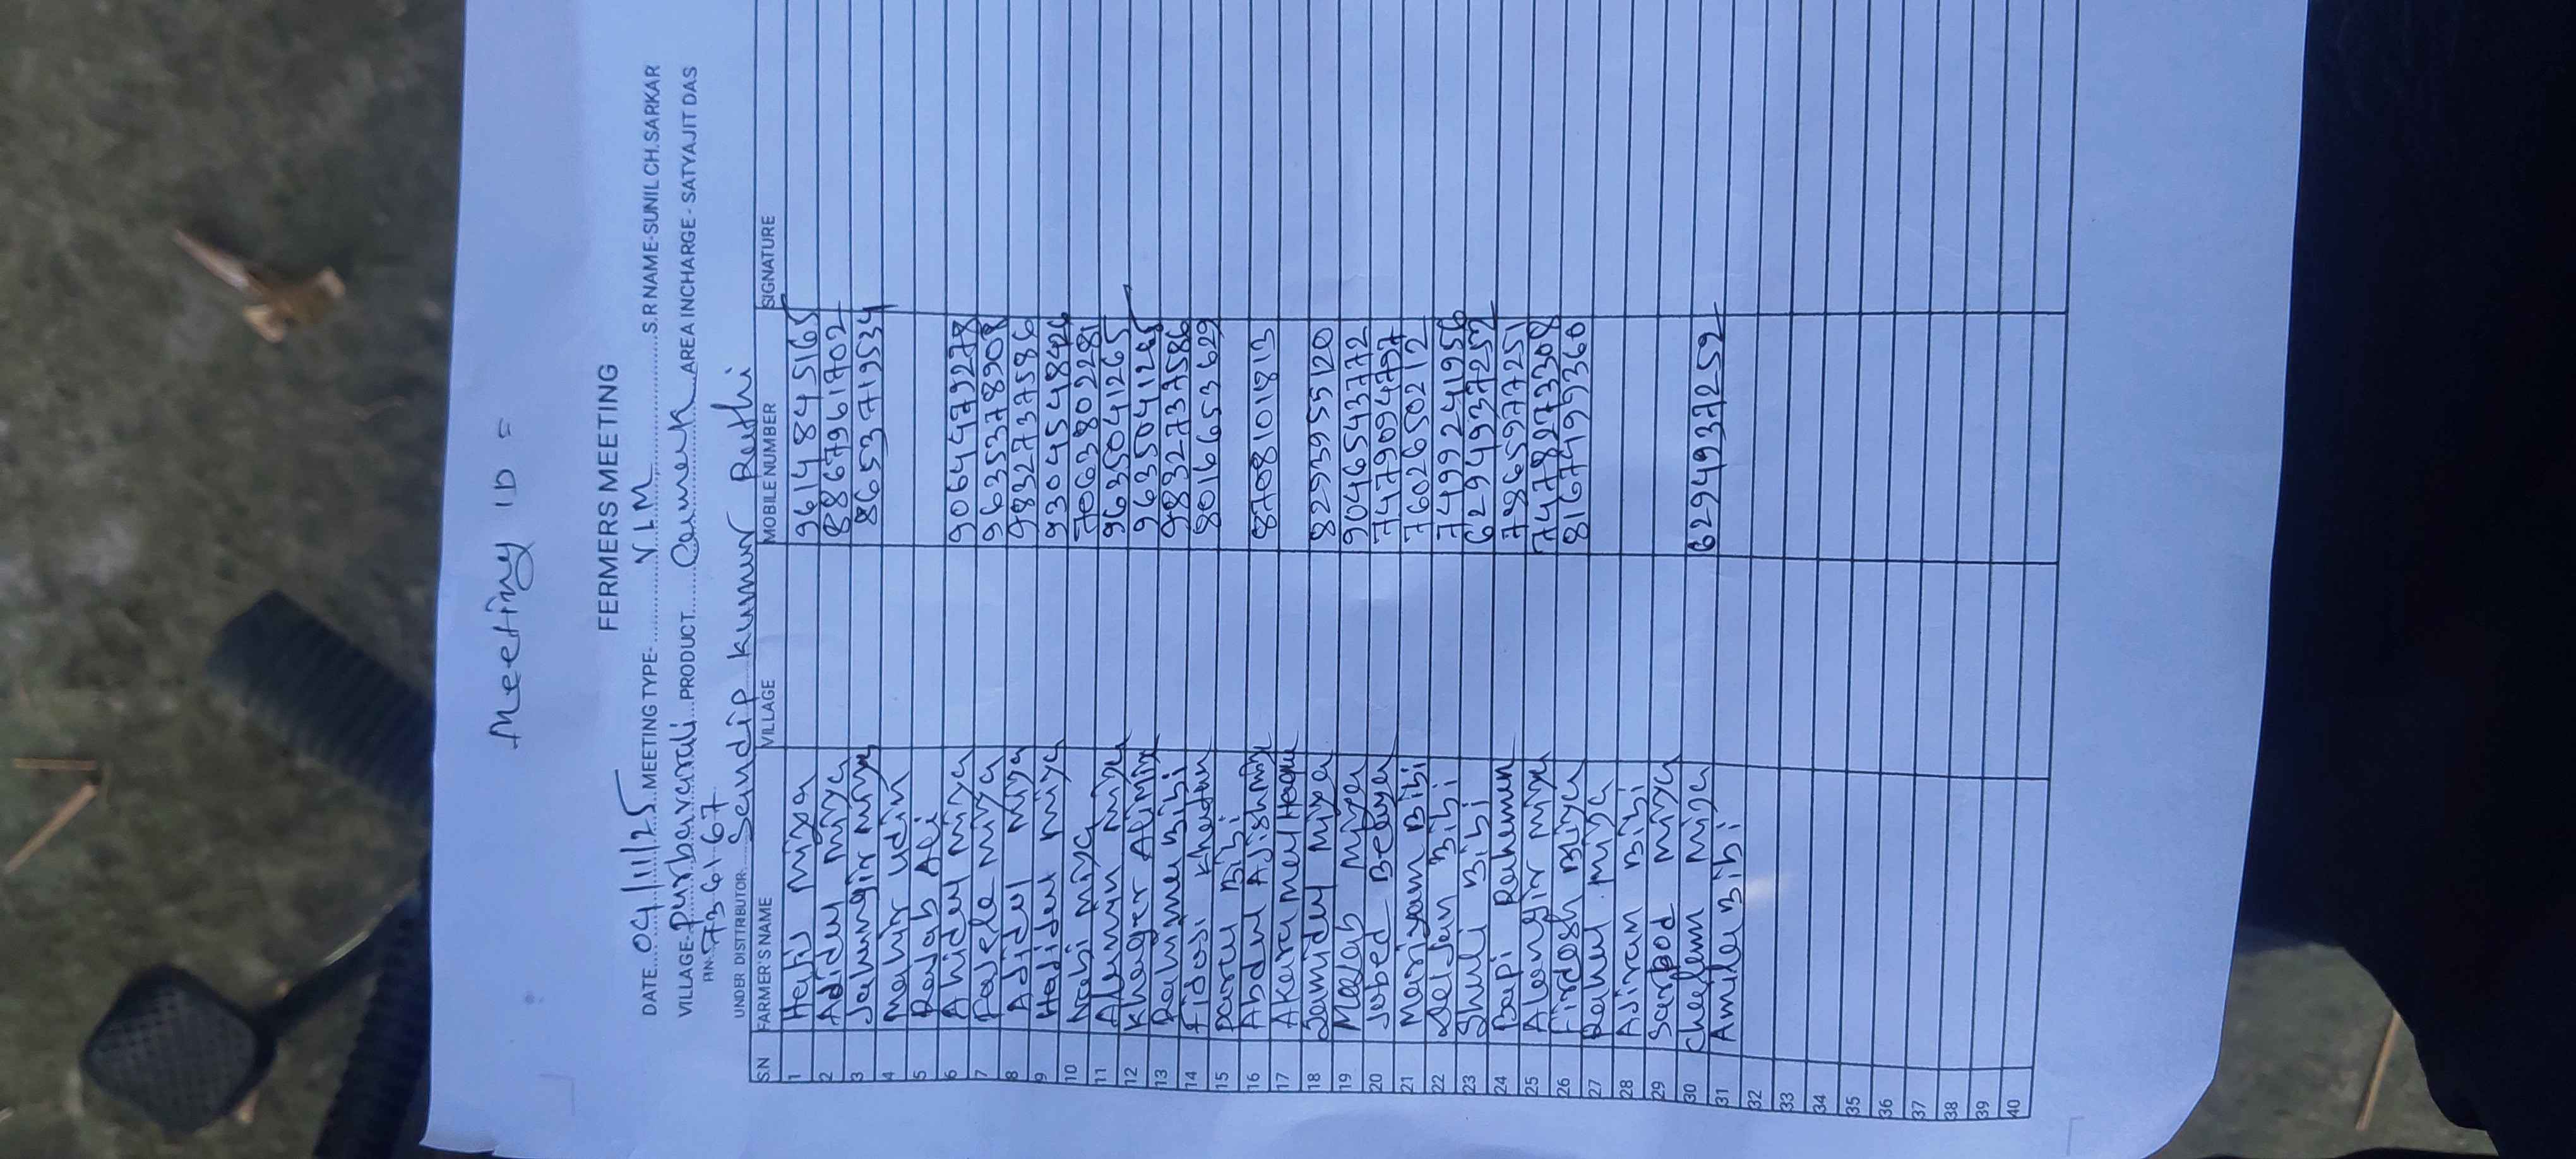 Meeting ID =
FERMERS MEETING
DATE... 04/11/25 ...MEETING TYPE-... V.I.M ...S.R NAME-SUNIL CH.SARKAR
VILLAGE- Purbavarali ...PRODUCT... Cement ...AREA INCHARGE - SATYAJIT DAS
PIN-736167
UNDER DISTTRIBUTOR... Sandip Kumar Rathi
S.N FARMER'S NAME VILLAGE MOBILE NUMBER SIGNATURE
1 Hafij Miya 9614845165
2 Adidul Miya 8867961702
3 Jahangir Miya 8653719534
4 Mahir Udin
5 Rajab Ali
6 Ahidul Miya 9064479278
7 Fazle Miya 9635378908
8 Adidul Miya 9832737586
9 Hadidul Miya 9304548426
10 Nabi Miya 7063802281
11 Alamgir Miya 9635041265
12 Khauger Ali Miya 9635041265
13 Rahima Bibi 9832737586
14 Fidosi Khatun 8016653629
15 Parul Bibi
16 Abdul Ajish Miya 8708101813
17 Akaramul Haque
18 Jamidul Miya 8293955120
19 Miya 9046543772
20 Jubed 7479094797
21 Mariyam Bibi 7602650212
22 Bibi 7499241956
23 Shuli Bibi 6294937252
24 Bapi Rahaman 7986597725
25 Alamgir Miya 7478273308
26 Firdosh Miya 8167499360
27 Rahul Miya
28 Ajiran Bibi
29 Miya
30 Miya 6294937252
31 Amila Bibi
32
33
34
35
36
37
38
39
40